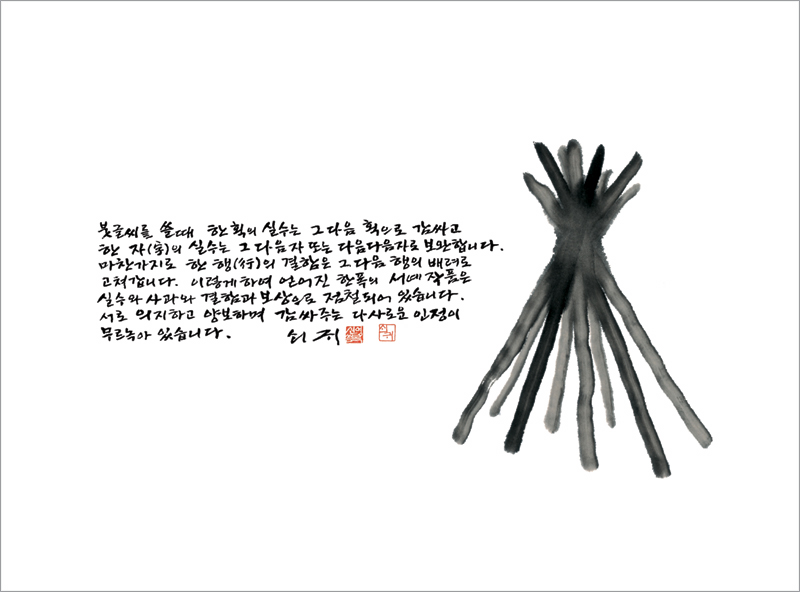 붓글씨를 쓸때 한 획의 실수는 그 다음 획으로 감싸고
한 자(字)의 실수는 그 다음 자 또는 다음 다음 자로 보완합니다.
마찬가지로 한 행(行)의 결함은 그 다음 행의 배려로
고쳐갑니다. 이렇게 하여 얻어진 한 폭의 서예작품은
실수와 사과와 결함과 보상으로 점철되어 있습니다.
서로 의지하고 양보하며 감싸주는 다사로운 인정이
무르녹아 있습니다. 쇠귀